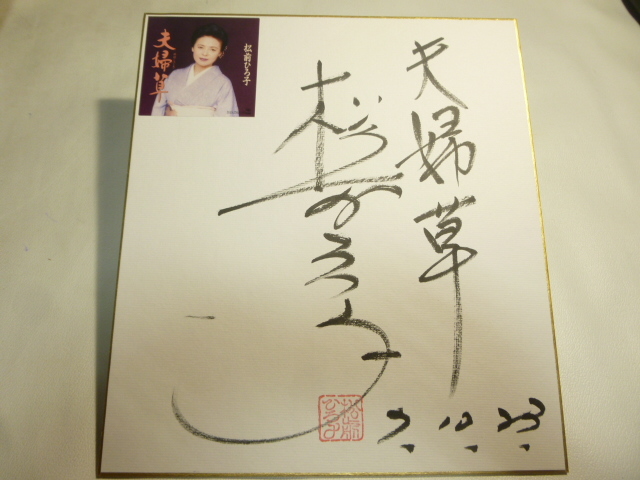 夫婦草
松前ひろ子
夫婦草
松前ひろ子
松前
ひろ子
7.10.23